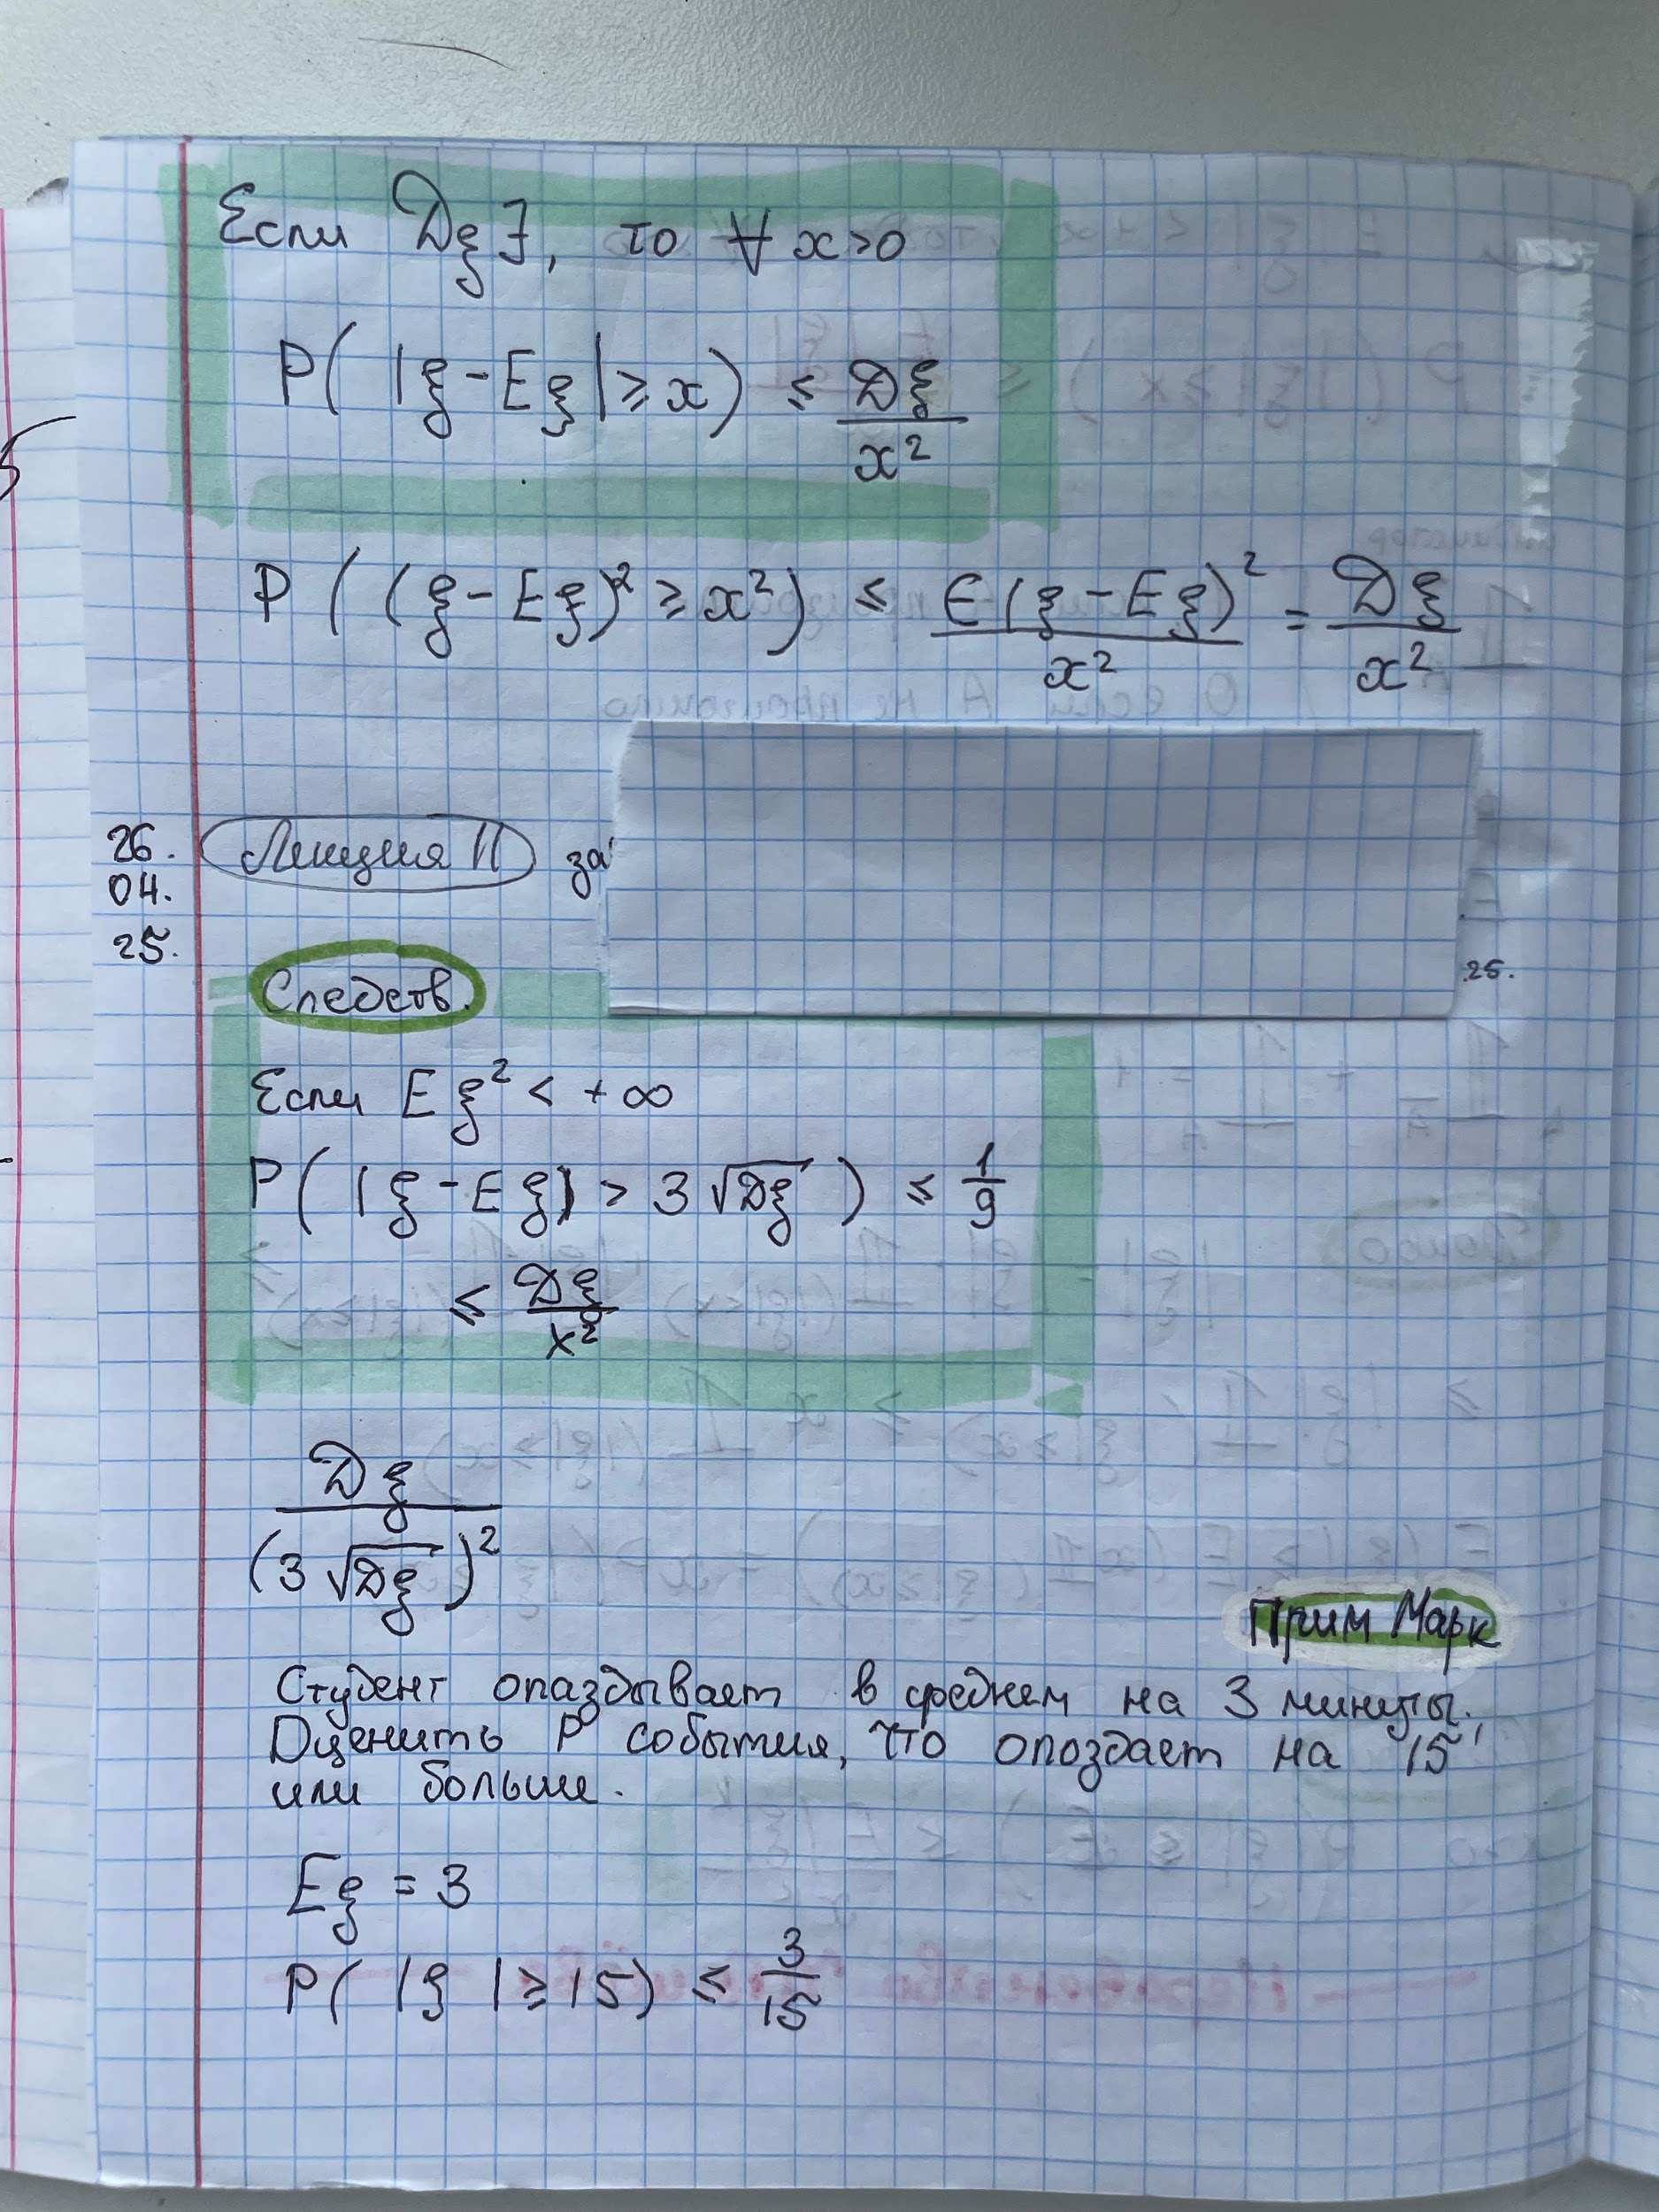 Если Dξ ∃, то ∀ x>0
P( |ξ - Eξ| ≥ x) ≤ Dξ / x²
P ( (ξ - Eξ)² ≥ x²) ≤ E(ξ - Eξ)² / x² = Dξ / x²
26.
04.
25.
Лекция 11 за
25.
Следств.
Если Eξ² < +∞
P( |ξ - Eξ| > 3 √Dξ ) ≤ 1/9
≤ Dξ / x²
Dξ / (3 √Dξ)²
Прим Марк
Студент опаздывает в среднем на 3 минуты.
Оценить P события, что опоздает на 15'
или больше.
Eξ = 3
P( |ξ| ≥ 15) ≤ 3/15